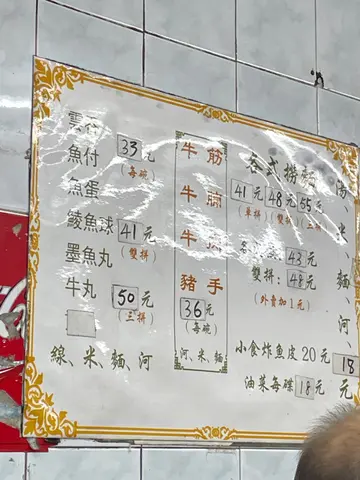 雲吞
魚付 33元
魚蛋 (每碗)
鯪魚球 41元
墨魚丸 (雙拼)
牛丸 50元
(三拼)
線、米、麵、河
牛筋
牛腩
牛
豬手
36元
(每碗)
河、米、麵
各式撈麵
41元 48元 55元
(單拼) (雙拼) (三拼)
43元
雙拼: 48元
(外賣加1元)
小食炸魚皮20元
油菜每碟18元
湯、米、河、
18
元